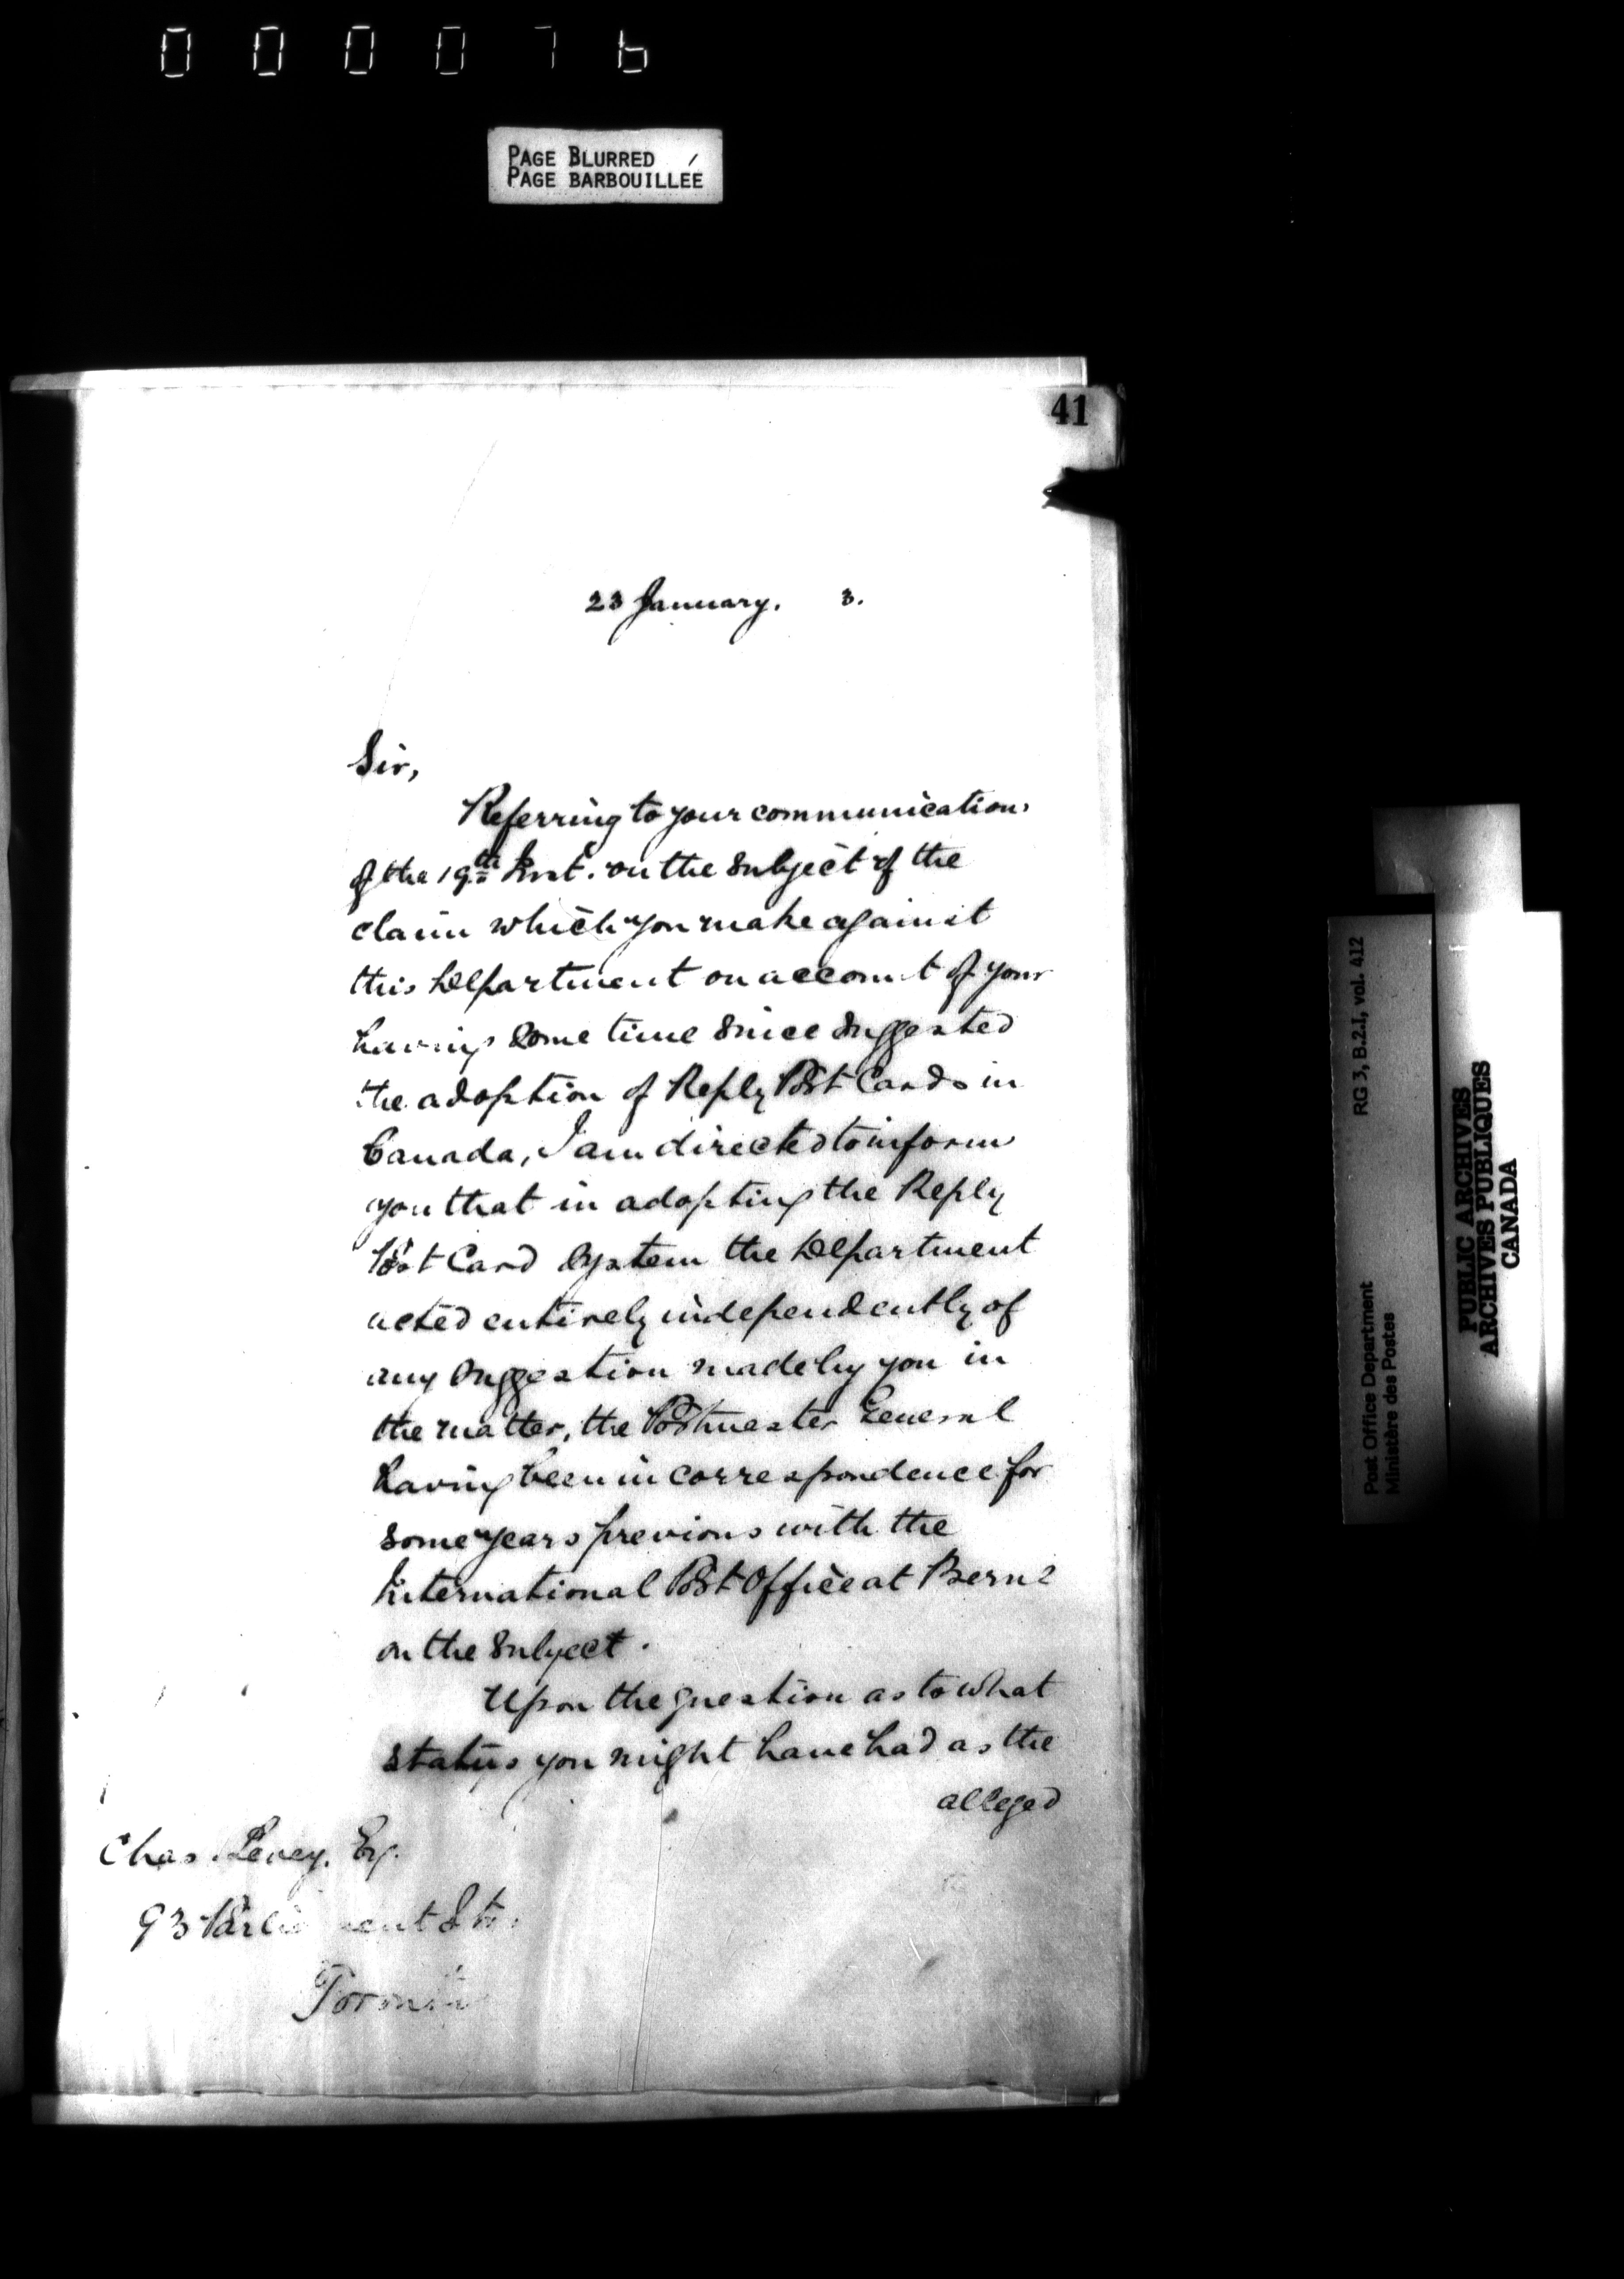 000076
PAGE BLURRED
PAGE BARBOUILLÉE
41
23 January. 3.
Sir,
Referring to your communication
of the 19th Inst. on the subject of the
claim which you make against
this Department on account of your
having some time since suggested
the adoption of Reply Post Cards in
Canada, I am directed to inform
you that in adopting the Reply
Post Card System the Department
acted entirely independently of
any suggestion made by you in
the matter, the Postmaster General
having been in correspondence for
some years previous with the
International Post Office at Berne
on the subject.
Upon the question as to what
status you might have had as the
alleged
Chas. Levey, Esq.
93 Parliament St.
Toronto
RG 3, B.2.I, vol. 412
Post Office Department
Ministère des Postes
PUBLIC ARCHIVES
ARCHIVES PUBLIQUES
CANADA